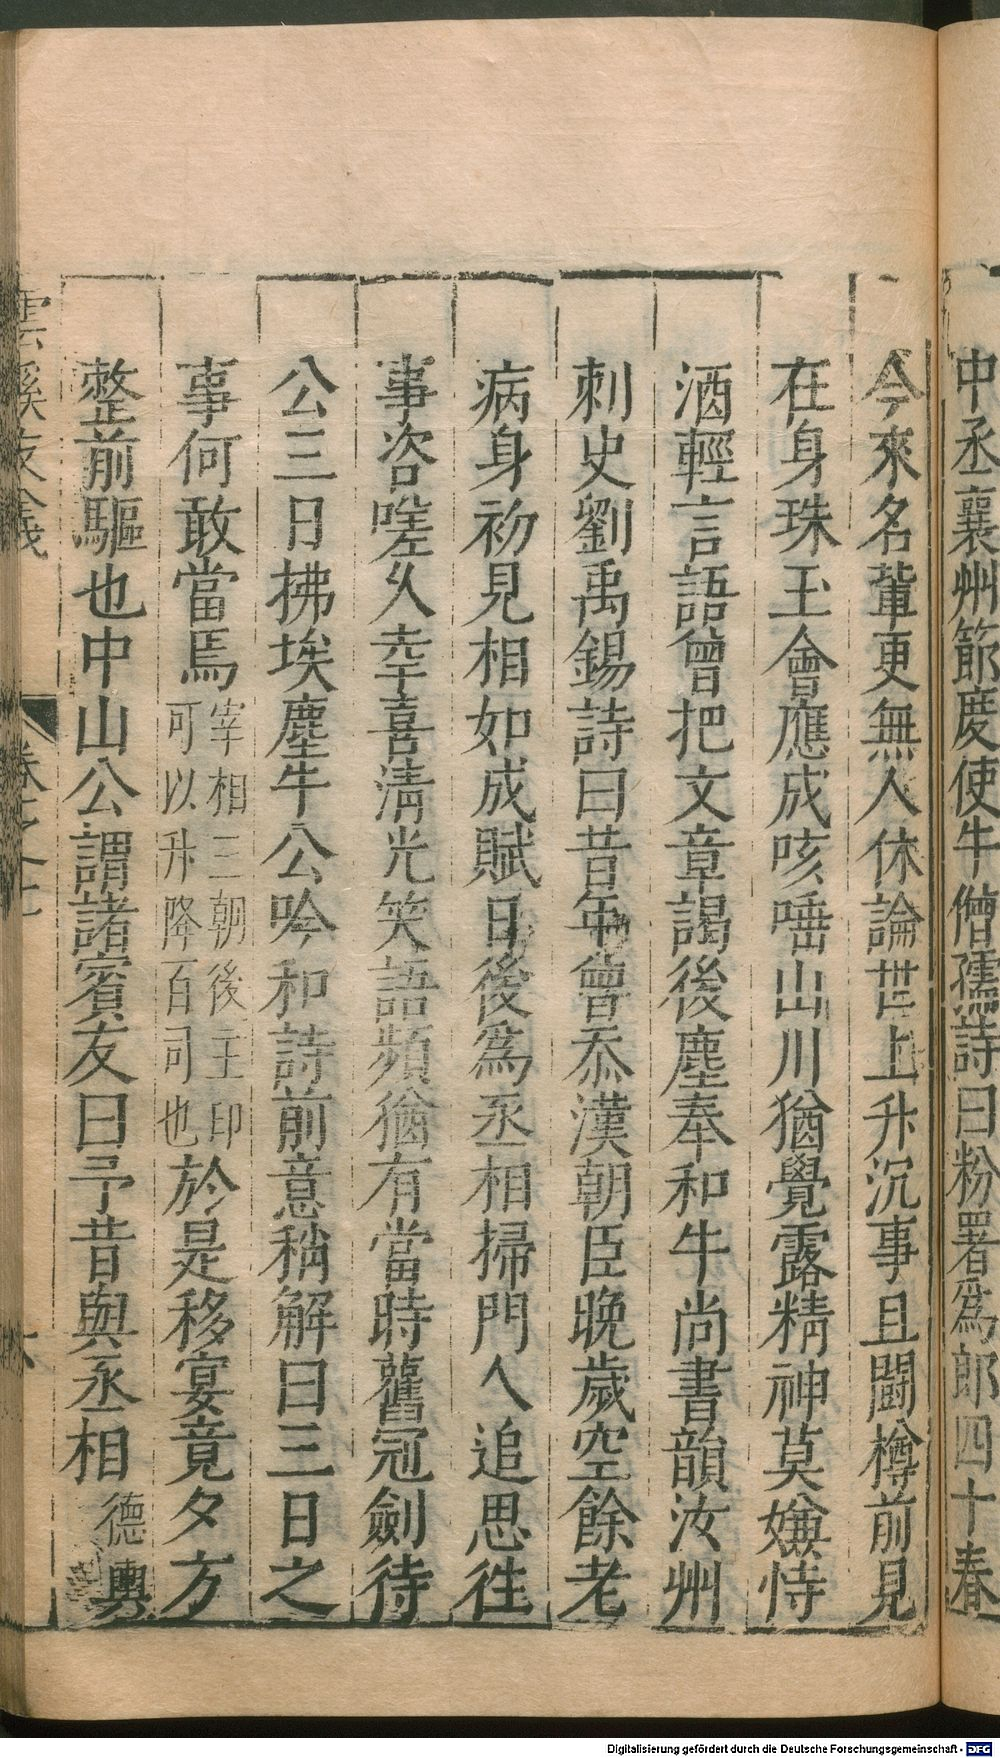 中丞襄州節度使牛僧孺詩曰粉署爲郎四十春
今來名輩更無人休論世上升沉事且鬪樽前見
在身珠玉會應成咳唾山川猶覺露精神莫嫌恃
酒輕言語曾把文章謁後塵奉和牛尚書韻汝州
刺史劉禹錫詩曰昔年曾忝漢朝臣晚歲空餘老
病身初見相如成賦日後爲丞相掃門人追思往
事咨嗟久幸喜清光笑語頻猶有當時舊冠劍待
公三日拂埃塵牛公吟和詩前意稍解曰三日之
事何敢當焉宰相三朝後主印可以升降百司也於是移宴竟夕方
整前驅也中山公謂諸賓友曰予昔與丞相德輿
雲溪友議 卷之十 六
Digitalisierung gefördert durch die Deutsche Forschungsgemeinschaft - DFG